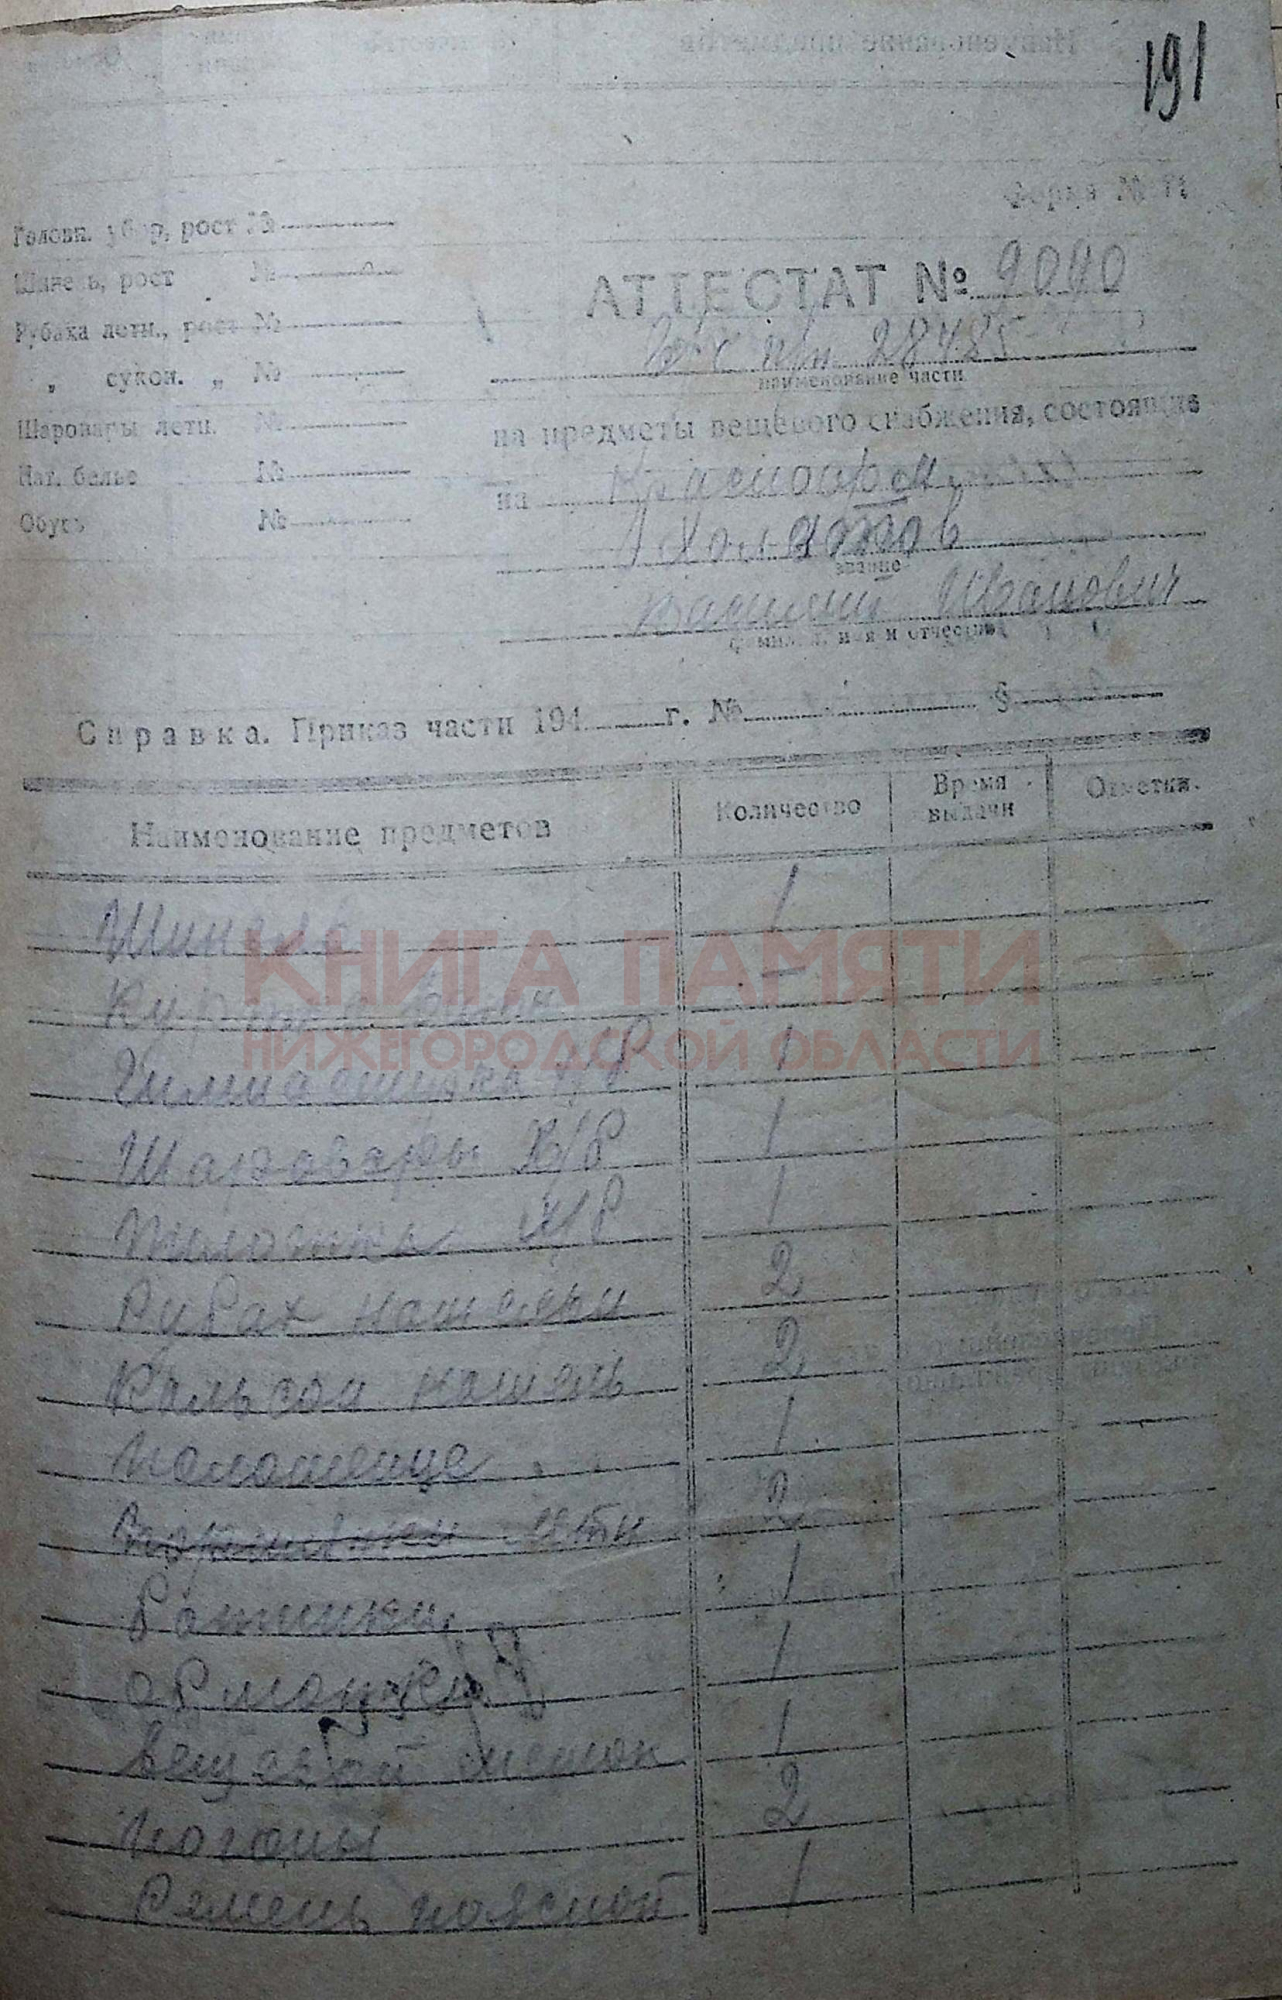 191
Форма №
Головн. убор, рост №
Шинель, рост №
Рубаха летн., рост №
„ сукон. „ №
Шаровары летн. №
Нат. белье №
Обувь №
АТТЕСТАТ № 9040
28485
наименование части
на предметы вещевого снабжения, состоящие
на Красноарм.
звание
Василий Иванович
фамилия, имя и отчество
Справка. Приказ части 194 г. № §
Наименование предметов Количество Время выдачи Отметки.
Шинель 1
Куртка ватн –
Гимнастирка Х/Б 1
Шаровары Х/Б 1
Пилотка Х/Б 1
Рубах нательн 2
Кальсон натель 2
Полотенце 1
Портянки летн 2
Ботинки 1
Обмотки 1
Вещевой мешок 1
Погоны 2
Ремень поясной 1
КНИГА ПАМЯТИ
НИЖЕГОРОДСКОЙ ОБЛАСТИ